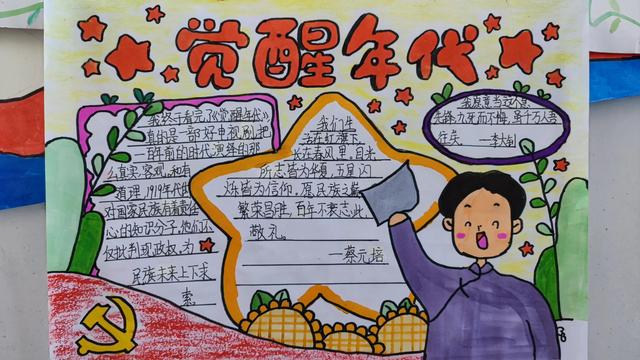 觉醒年代
我终于看完《觉醒年代》
真的是一部好电视剧,把
百年前的时代演绎的那
么真实、客观、和有
道理,1919年代的
对国家民族有着责任
心的知识分子,他们不
仅批判现政权,为
民族未来上下求
索。
我们生
在红旗下,
长在春风里,目光
所志皆为华夏,五星闪
烁皆为信仰,愿民族之巅
繁荣昌胜,百年不衰志此
敬礼。
一蔡元培
我愿意当这个
先锋,九死而不悔,虽千万人吾
往矣。
一李大钊